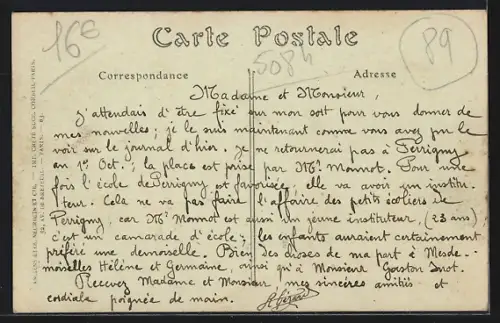 16€
5084
89
Carte Postale
Correspondance
Adresse
Madame et Monsieur,
J'attendais d'être fixé sur mon sort pour vous donner de
mes nouvelles ; je le suis maintenant comme vous avez pu le
voir sur le journal d'hier. je ne retournerai pas à Périgny
au 1er Oct. ; la place est prise par Mr Monnot. Pour une
fois l'école de Périgny est favorisée, elle va avoir un institu-
teur. Cela ne va pas faire l'affaire des petits écoliers de
Périgny, car Mr Monnot est aussi un jeune instituteur, (23 ans)
c'est un camarade d'école ; les enfants auraient certainement
préféré une demoiselle. Bien des choses de ma part à Mesde-
moiselles Hélène et Germaine, ainsi qu'à Monsieur Gaston
Recevez Madame et Monsieur, mes sincères amitiés et
cordiale poignée de main.